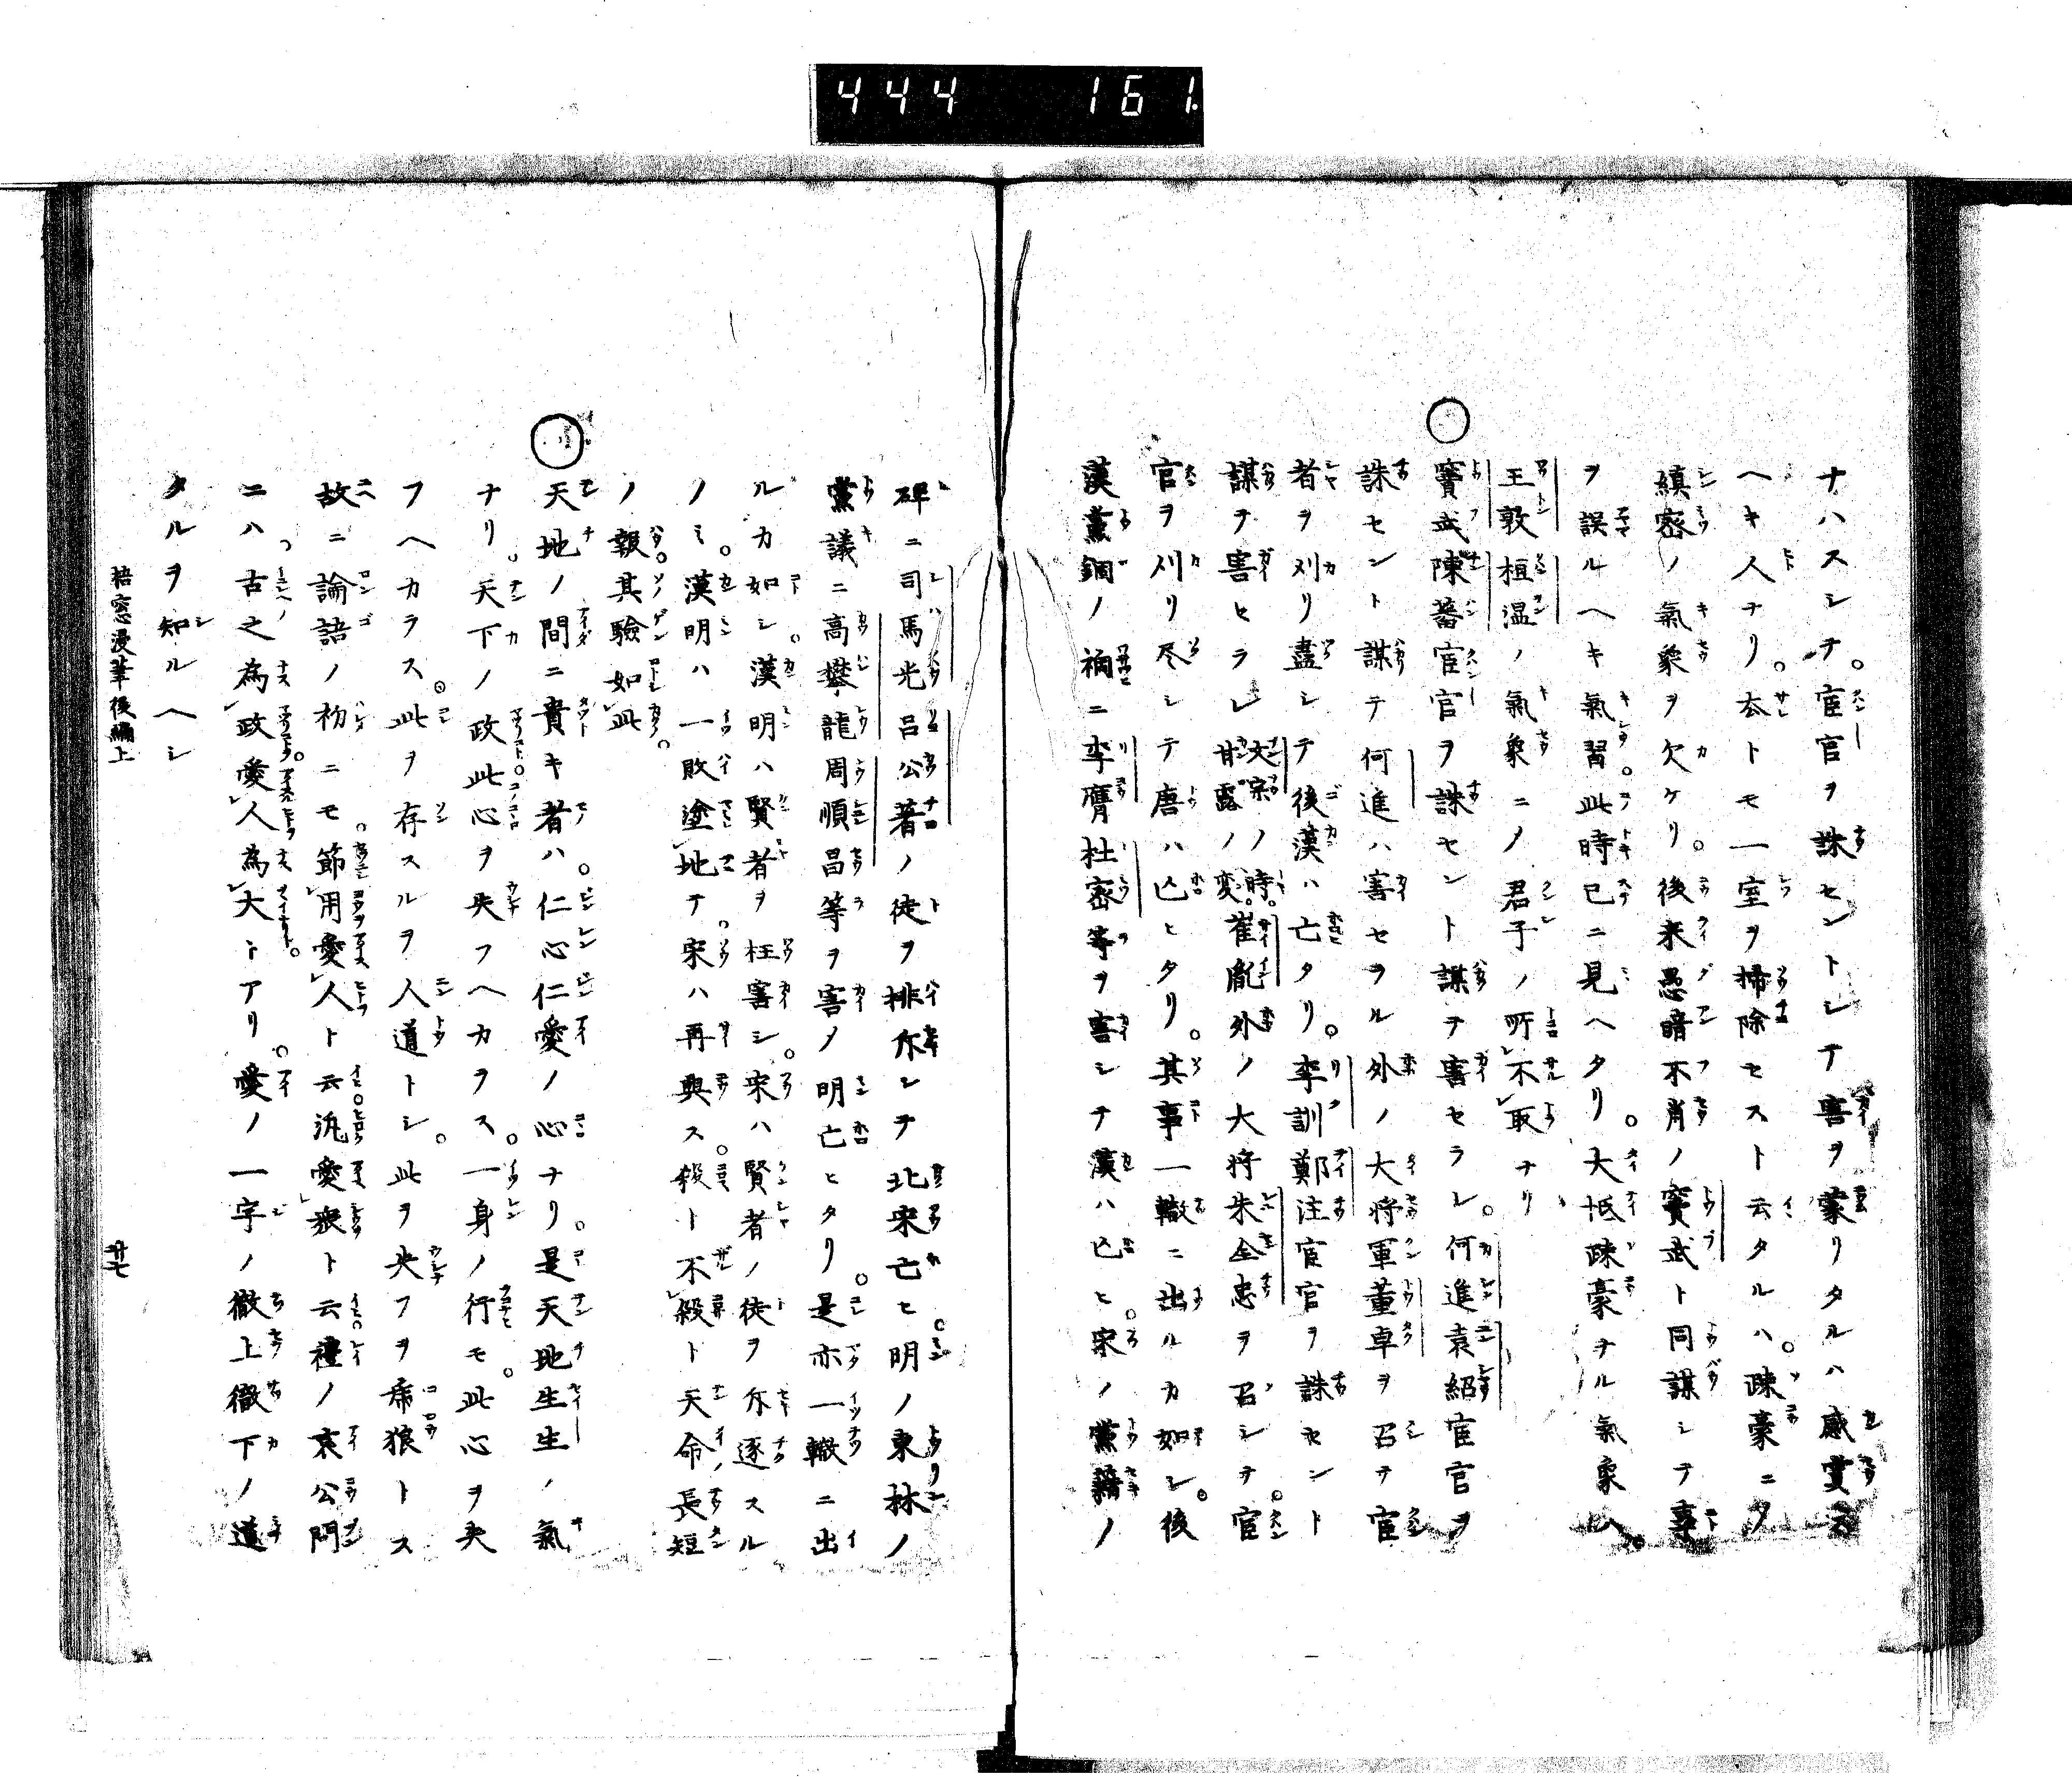 444 161
ナハスシテ。宦官ヲ誅セントシテ害ヲ蒙リタルハ感賞ス
ヘキ人ナリ。去トモ一室ヲ掃除セスト云タルハ。疎豪ニタ
縝密ノ氣象ヲ欠ケリ。後来愚暗不肖ノ竇武ト同謀シテ事
ヲ誤ルヘキ氣習。此時已ニ見ヘタリ。大抵疎豪ナル氣象ハ。
王敦桓温ノ氣象ニノ君子ノ所不取ナリ
○竇武陳蕃宦官ヲ誅セント謀テ害セラレ。何進袁紹宦官ヲ
誅セント謀テ何進ハ害セラル外ノ大将軍董卓ヲ召テ宦
者ヲ刈リ盡シテ後漢ハ亡タリ。李訓鄭注宦官ヲ誅セント
謀テ害セラレ文宗ノ時。甘露ノ変。崔胤外ノ大将朱全忠ヲ召シテ。宦
官ヲ刈リ尽シテ唐ハ亡ヒタリ。其事一轍ニ出ルカ如シ。後
漢黨錮ノ禍ニ李膺杜密等ヲ害シテ漢ハ亡ヒ。宋ノ黨籍ノ
碑ニ司馬光呂公著ノ徒ヲ排斥シテ北宋亡ヒ。明ノ東林ノ
黨議ニ高攀龍周順昌等ヲ害ノ明亡ヒタリ。是亦一轍ニ出
ルカ如シ。漢明ハ賢者ヲ枉害シ。宋ハ賢者ノ徒ヲ斥逐スル
ノミ。漢明ハ一敗塗地テ。宋ハ再興ス。殺ト不殺ト天命ノ長短
ノ報。其驗如此。
○天地ノ間ニ貴キ者ハ。仁心仁愛ノ心ナリ。是天地生生ノ氣
ナリ。天下ノ政此心ヲ失フヘカラス。一身ノ行モ。此心ヲ失
フヘカラス。此ヲ存スルヲ人道トシ。此ヲ失フヲ虎狼トス
故ニ論語ノ初ニモ。節用愛人ト云汎愛衆ト云禮ノ哀公問
ニハ古之為政愛人為大トアリ。愛ノ一字ノ徹上徹下ノ道
タルヲ知ルヘシ
梧窓漫筆後編上 廿七